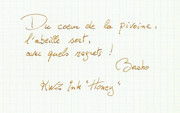 Du coeur de la pivoine,
l'abeille sort,
avec quels regrets !
Basho
KWZ Ink "Honey"